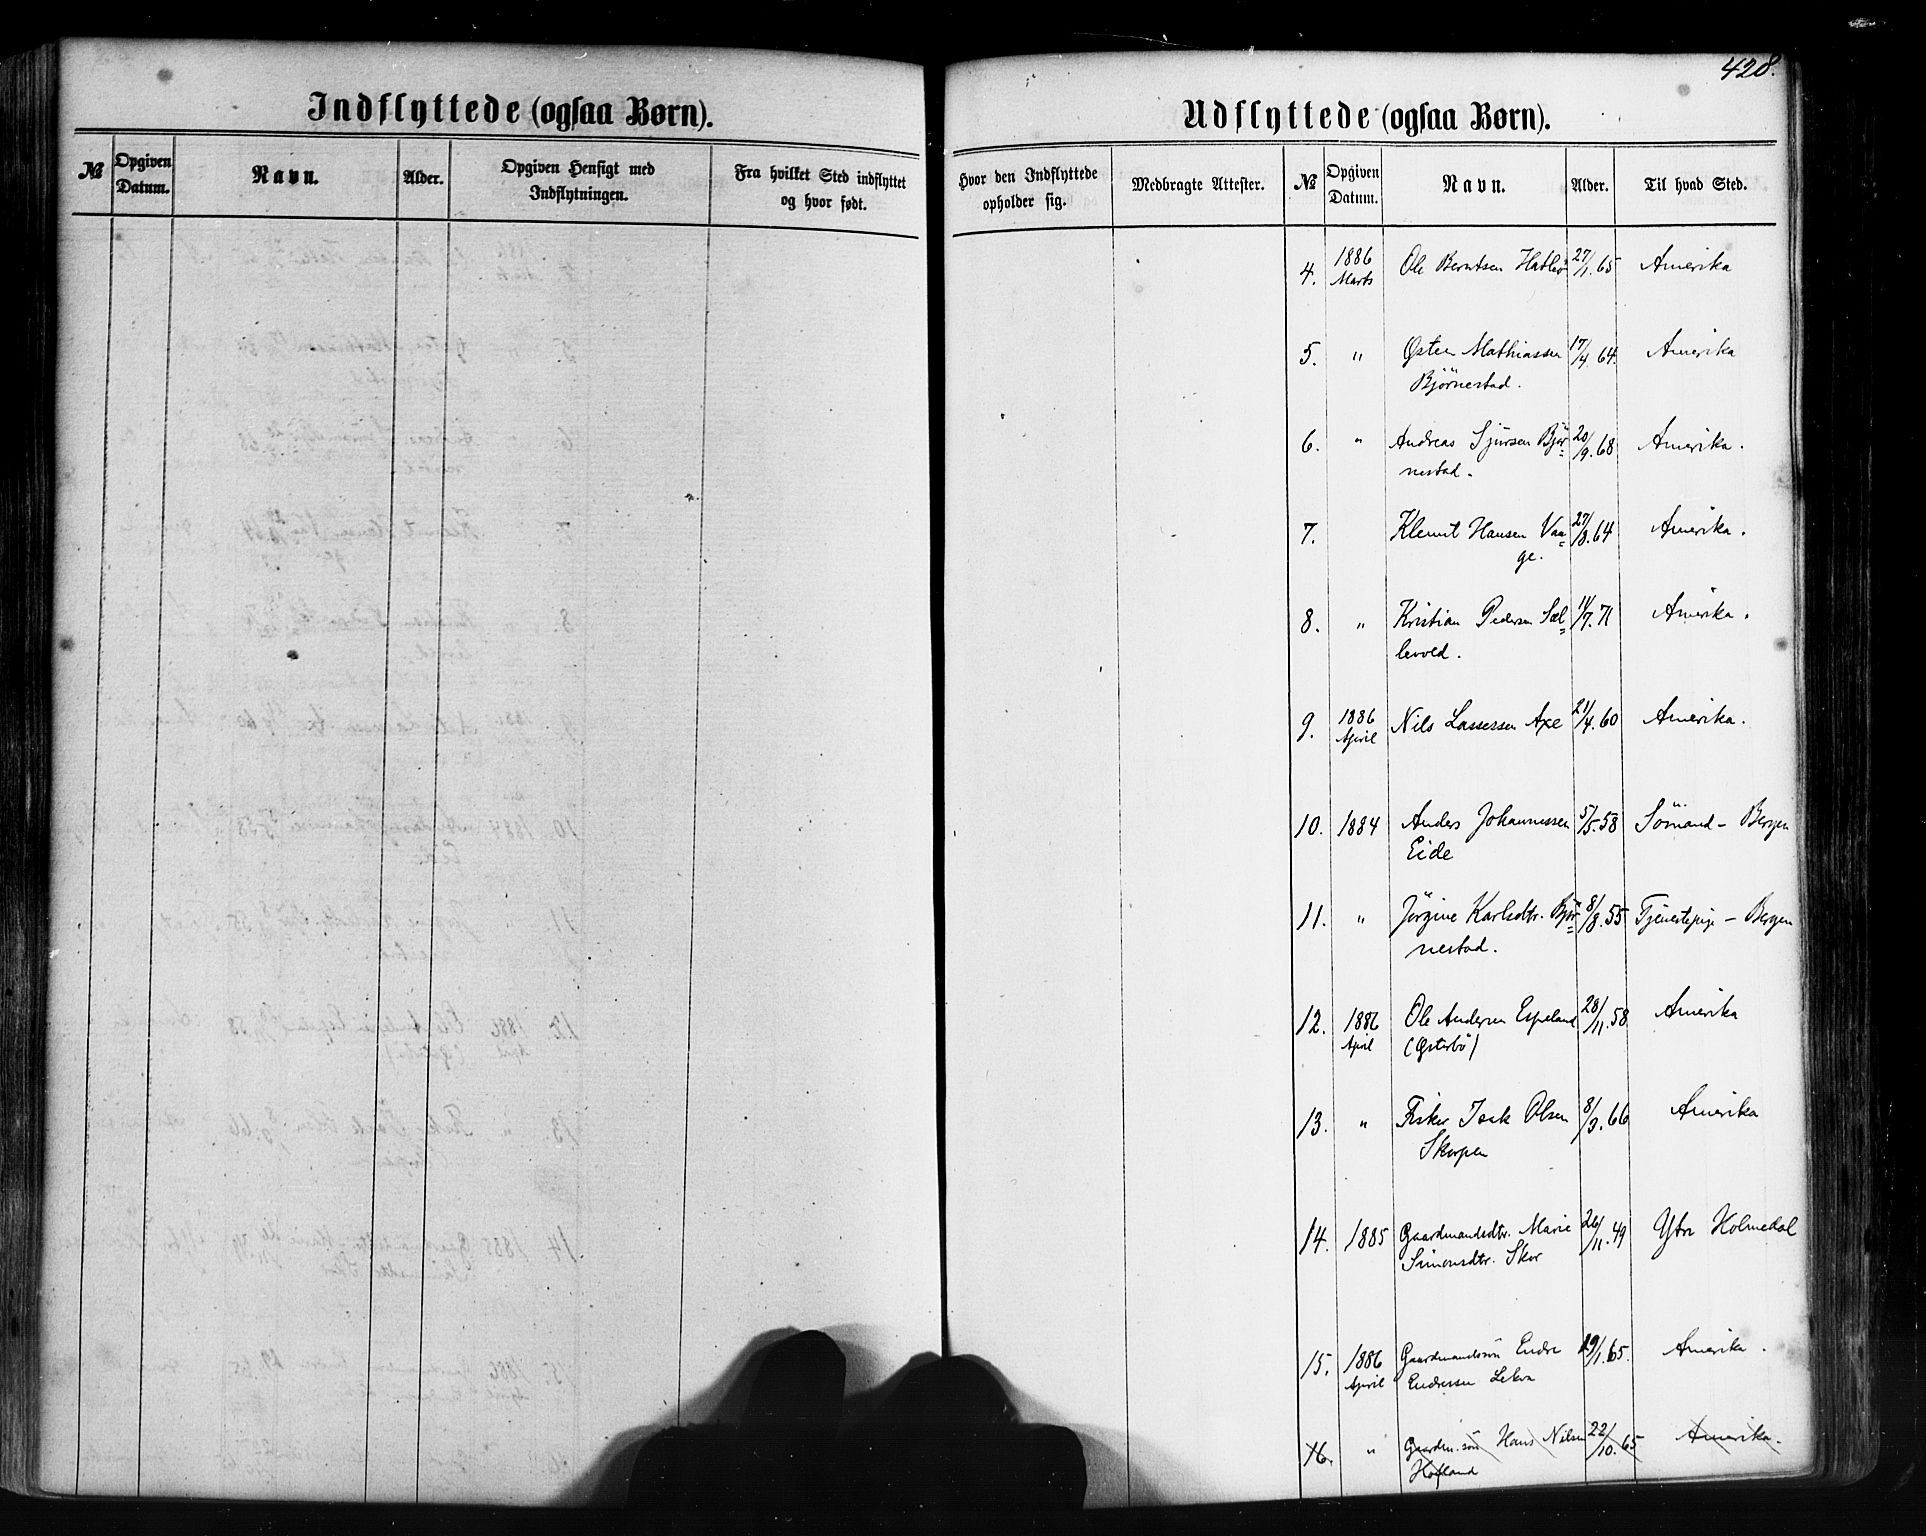 428.
Indflyttede (ogsaa Børn).
№ Opgiven Datum. Navn. Alder. Opgiven Hensigt med Indflytningen. Fra hvilket Sted indflyttet og hvor født.
Udflyttede (ogsaa Børn).
Hvor den Indflyttede opholder sig. Medbragte Attester. № Opgiven Datum. Navn. Alder. Til hvad Sted.
4. 1886 Marts Ole Berntsen Hatlø 27/1. 65 Amerika
5. " Østen Mathiassen 17/4 64. Amerika
Björnestad.
6. " Andreas Sjursen Bjør= 20/9. 68 Amerika.
nestad.
7. Klemit Hansen Vaa= 27/8. 64 Amerika.
ge.
8. " Kristian Pedersen Sæl= 11/7. 71 Amerika.
levold.
9. 1886 April Nils Lassessen Axe 21/4. 60 Amerika.
10. 1884 Anders Johannessen 5/5. 58 Sömand - Bergen
Eide
11. " Jörgine Karlsdtr. Bjør= 8/8. 55 Tjenestepige - Bergen
nestad.
12. 1886 April Ole Andersen Espeland 28/11. 58 Amerika
(Østerbö)
13. " Fisker Isak Olsen 8/3. 66 Amerika
Skorpen
14. 1885 Gaardmandsdtr. Marie 26/11. 49 Ytre Holmedal
Simonsdtr. Skor
15. 1886 April Gaardmandssön Endre 19/1. 65. Amerika.
Endressen Lekva
16. " Gaardm. sön Hans Nilsen 22/10. 65 Amerika.
Hofland